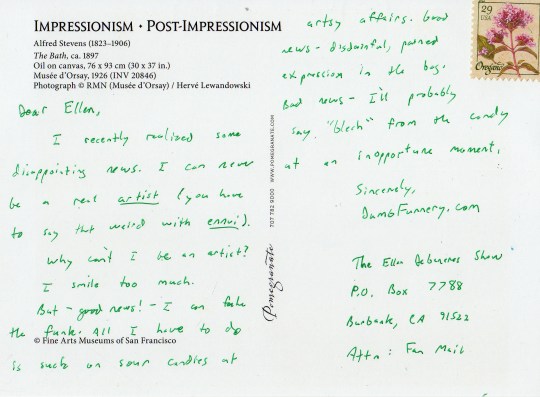 IMPRESSIONISM · POST-IMPRESSIONISM
Alfred Stevens (1823–1906)
The Bath, ca. 1897
Oil on canvas, 76 x 93 cm (30 x 37 in.)
Musée d'Orsay, 1926 (INV 20846)
Photograph © RMN (Musée d'Orsay) / Hervé Lewandowski
Dear Ellen,
I recently realized some
disappointing news. I can never
be a real artist (you have
to say that weird with ennui).
Why can't I be an artist?
I smile too much.
But - good news! - I can fake
the funk. All I have to do
© Fine Arts Museums of San Francisco
is suck on sour candies at
Pomegranate 707 782 9000 WWW.POMEGRANATE.COM
artsy affairs. Good
news - disdainful, pained
expression in the bag.
Bad news - I'll probably
say "blech" from the candy
at an inopportune moment.
Sincerely,
DumbFunnery.com
The Ellen DeGeneres Show
P.O. Box 7788
Burbank, CA 91522
Attn: Fan Mail
29
USA
Oregano